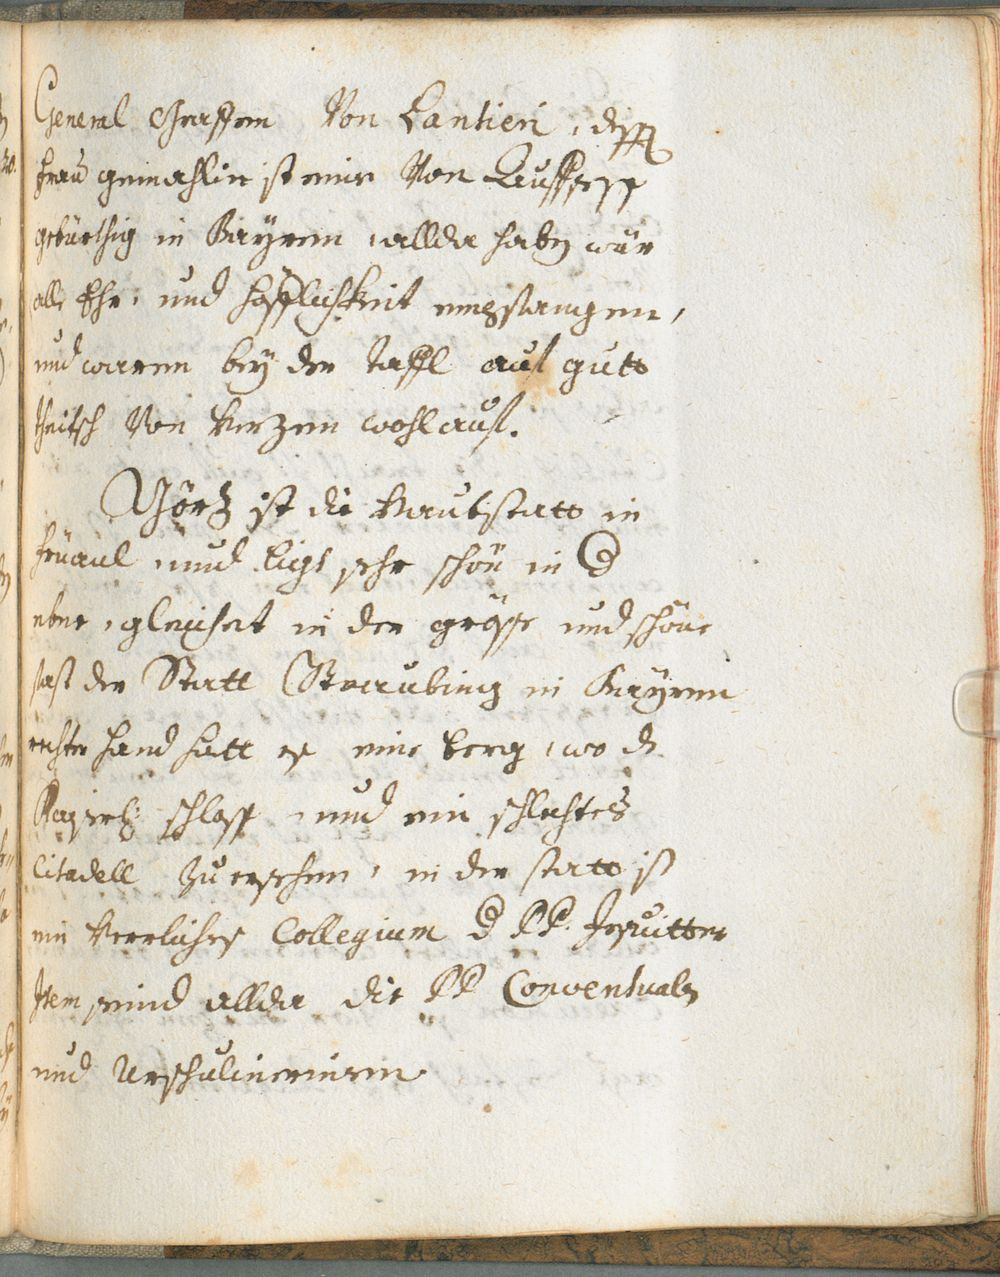 General Graffen Von Lantieri, dessen
frau gemahlin ist eine Von Auffsess
gebürthig in Bayrn, allda haben wür
alle Ehr, und hofflichkeit empfangen,
und waren bey der Taffl auf gutt
theitsch Von Herzen wohlauf.
Görtz ist die Haubtstatt in
friaul, und ligt sehr schön in der
ebne, gleichet in der grösse und schöne
fast der Statt Straubing in Bayrn
rechter hand hatt es eine berg, wo d
Kayserl: schloss, und ein schlechtes
Citadell zu ersehen, in der statt ist
ein herrliches Collegium d PP. Jesuitter
Item seind allda die PP Conventualn
und Urschulinerinen